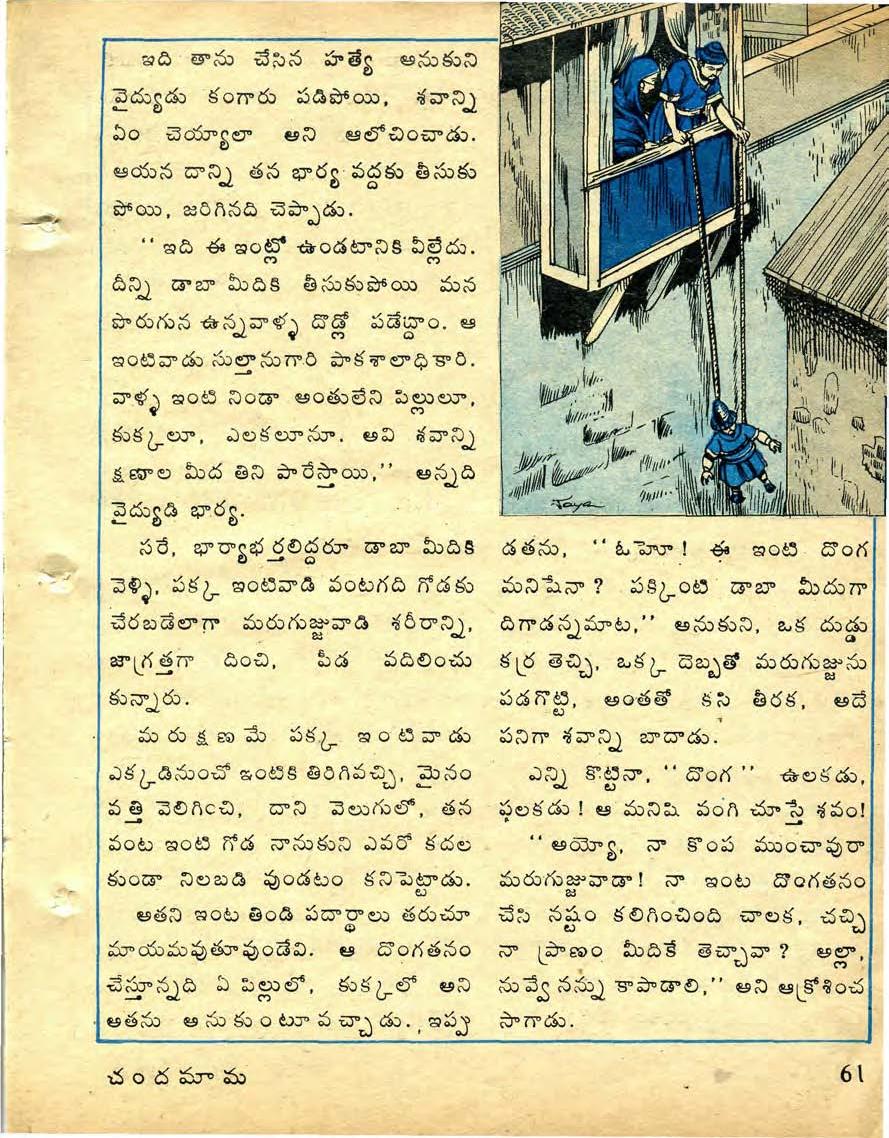 ఇది తాను చేసిన హత్యే అనుకుని
వైద్యుడు కంగారు పడిపోయి, శవాన్ని
ఏం చెయ్యాలా అని ఆలోచించాడు.
ఆయన దాన్ని తన భార్య వద్దకు తీసుకు
పోయి, జరిగినది చెప్పాడు.
“ఇది ఈ ఇంట్లో ఉండటానికి వీల్లేదు.
దీన్ని డాబా మీదికి తీసుకుపోయి మన
పొరుగున ఉన్నవాళ్ళ దొడ్లో పడేద్దాం. ఆ
ఇంటివాడు సుల్తానుగారి పాకశాలాధికారి.
వాళ్ళ ఇంటి నిండా అంతులేని పిల్లులూ,
కుక్కలూ, ఎలకలూనూ. అవి శవాన్ని
క్షణాల మీద తిని పారేస్తాయి,” అన్నది
వైద్యుడి భార్య.
సరే, భార్యాభర్తలిద్దరూ డాబా మీదికి
వెళ్ళి, పక్క ఇంటివాడి వంటగది గోడకు
చేరబడేలాగా మరుగుజ్జువాడి శరీరాన్ని,
జాగ్రత్తగా దించి, పీడ వదిలించు
కున్నారు.
మరుక్షణమే పక్క ఇంటివాడు
ఎక్కడినుంచో ఇంటికి తిరిగివచ్చి, మైనం
వత్తి వెలిగించి, దాని వెలుగులో, తన
వంట ఇంటి గోడ నానుకుని ఎవరో కదల
కుండా నిలబడి వుండటం కనిపెట్టాడు.
అతని ఇంట తిండి పదార్థాలు తరుచూ
మాయమవుతూవుండేవి. ఆ దొంగతనం
చేస్తూన్నది ఏ పిల్లులో, కుక్కలో అని
అతను అనుకుంటూ వచ్చాడు. ఇప్పు
డతను, “ఓహూ! ఈ ఇంటి దొంగ
మనిషేనా? పక్కింటి డాబా మీదుగా
దిగాడన్నమాట,” అనుకుని, ఒక దుడ్డు
కర్ర తెచ్చి, ఒక్క దెబ్బతో మరుగుజ్జును
పడగొట్టి, అంతతో కసి తీరక, అదే
పనిగా శవాన్ని బాదాడు.
ఎన్ని కొట్టినా, “దొంగ” ఉలకడు,
పలకడు! ఆ మనిషి వంగి చూస్తే శవం!
“అయ్యో, నా కొంప ముంచావురా
మరుగుజ్జువాడా! నా ఇంట దొంగతనం
చేసి నష్టం కలిగించింది చాలక, చచ్చి
నా ప్రాణం మీదికే తెచ్చావా? అల్లా,
నువ్వే నన్ను కాపాడాలి,” అని ఆక్రోశించ
సాగాడు.
చందమామ
61